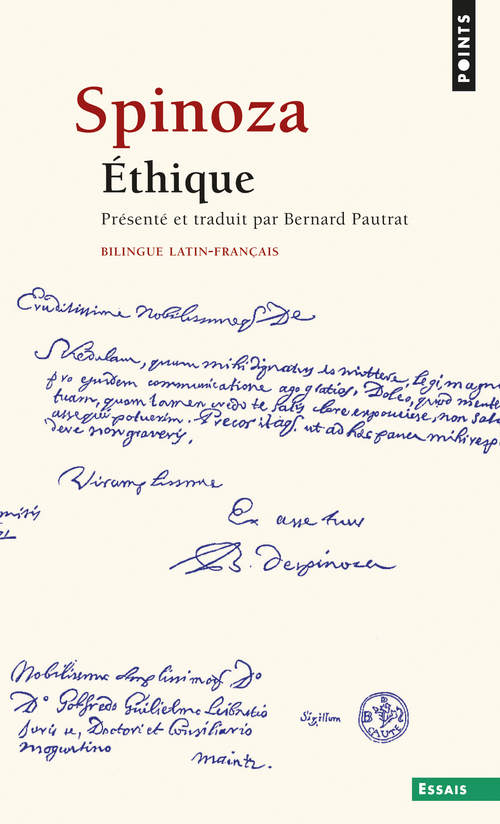 POINTS
Spinoza
Éthique
Présenté et traduit par Bernard Pautrat
BILINGUE LATIN-FRANÇAIS
Eruditissime Nobilissimeq De
Schedulam, quam mihi dignatus es mittere, legi, magna
pro ejusdem communicatione ago gratias, Doleo, quod mente
tuam, quam tamen credo te satis clare exposuisse, non
assequi potuerim. Precor itaq ut ad hæc pauca mihi resp
dere non graveris,
Vir amplissime
Ex asse tuus
B. despinoza
Nobilissimo Amplissimoq Do
Do Gotfredo Guilielmo Leibnitio
Juris u, Doctori et Consiliario
Moguntino
Maintz.
Sigillum
B D S
CAUTE
ESSAIS